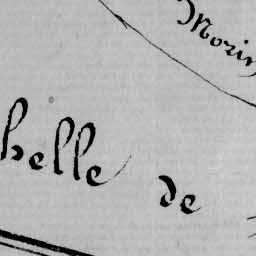 Morin
helle de